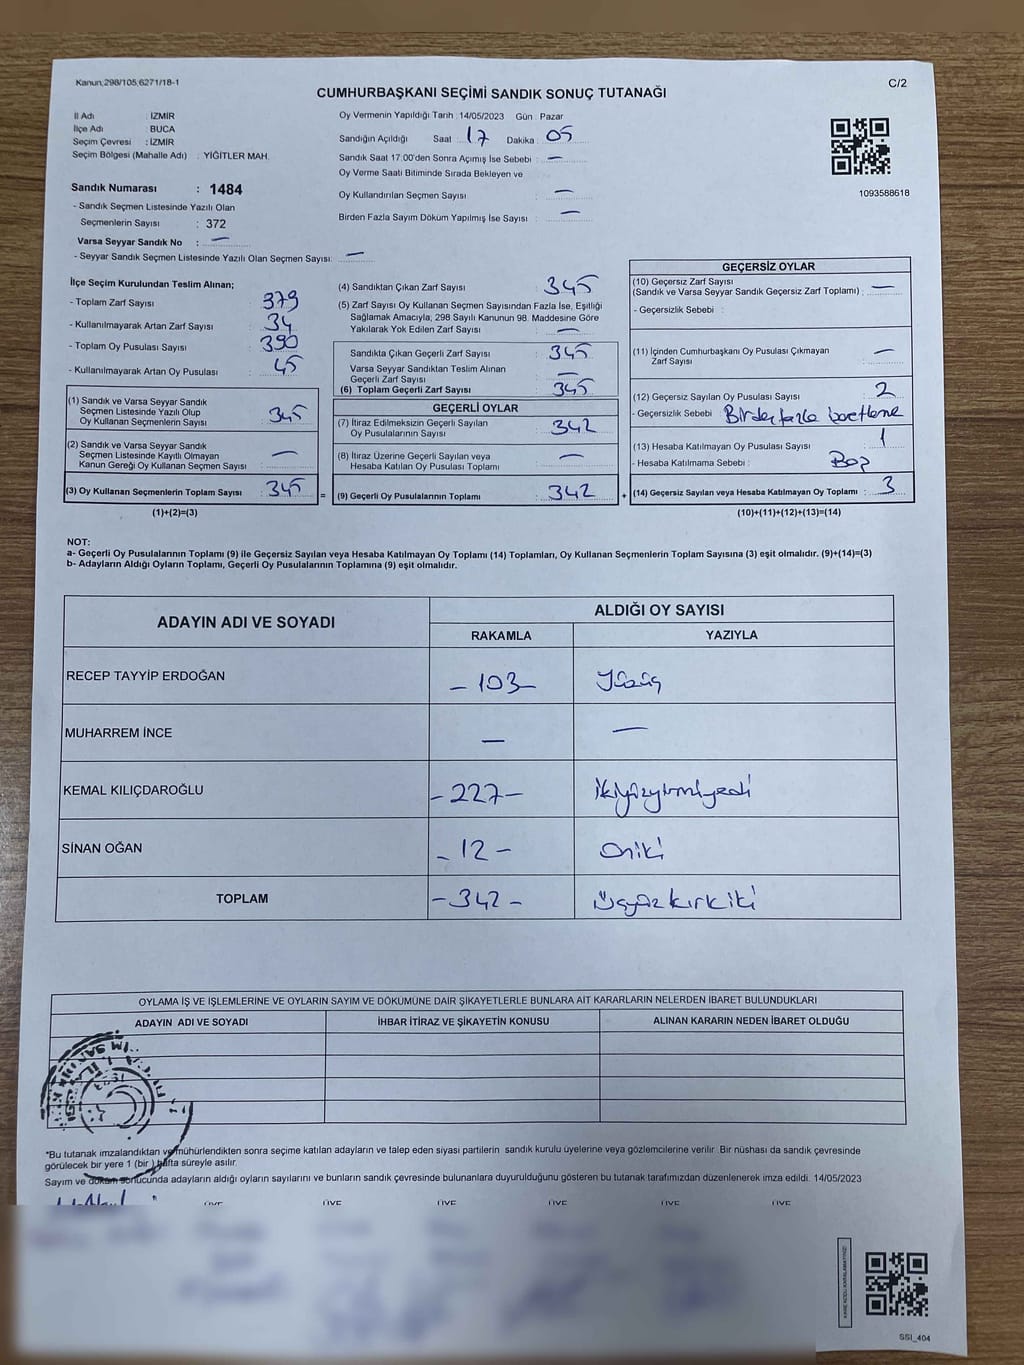 Kanun:298/105,6271/18-1
C/2
CUMHURBAŞKANI SEÇİMİ SANDIK SONUÇ TUTANAĞI
İl Adı : İZMİR
İlçe Adı : BUCA
Seçim Çevresi : İZMİR
Seçim Bölgesi (Mahalle Adı) : YİĞİTLER MAH.
Oy Vermenin Yapıldığı Tarih :14/05/2023 Gün : Pazar
Sandığın Açıldığı Saat : 17 Dakika : 05
Sandık Saat 17:00'den Sonra Açılmış İse Sebebi : —
Oy Verme Saati Bitiminde Sırada Bekleyen ve
Oy Kullandırılan Seçmen Sayısı : —
Birden Fazla Sayım Döküm Yapılmış İse Sayısı : —
1093588618
Sandık Numarası : 1484
- Sandık Seçmen Listesinde Yazılı Olan
Seçmenlerin Sayısı : 372
Varsa Seyyar Sandık No : —
- Seyyar Sandık Seçmen Listesinde Yazılı Olan Seçmen Sayısı: —
İlçe Seçim Kurulundan Teslim Alınan;
- Toplam Zarf Sayısı : 379
- Kullanılmayarak Artan Zarf Sayısı : 34
- Toplam Oy Pusulası Sayısı : 390
- Kullanılmayarak Artan Oy Pusulası : 45
(1) Sandık ve Varsa Seyyar Sandık
Seçmen Listesinde Yazılı Olup
Oy Kullanan Seçmenlerin Sayısı : 345
(2) Sandık ve Varsa Seyyar Sandık
Seçmen Listesinde Kayıtlı Olmayan
Kanun Gereği Oy Kullanan Seçmen Sayısı : —
(3) Oy Kullanan Seçmenlerin Toplam Sayısı : 345
(1)+(2)=(3)
(4) Sandıktan Çıkan Zarf Sayısı : 345
(5) Zarf Sayısı Oy Kullanan Seçmen Sayısından Fazla İse, Eşitliği
Sağlamak Amacıyla; 298 Sayılı Kanunun 98. Maddesine Göre
Yakılarak Yok Edilen Zarf Sayısı : —
Sandıkta Çıkan Geçerli Zarf Sayısı : 345
Varsa Seyyar Sandıktan Teslim Alınan
Geçerli Zarf Sayısı : —
(6) Toplam Geçerli Zarf Sayısı : 345
GEÇERLİ OYLAR
(7) İtiraz Edilmeksizin Geçerli Sayılan
Oy Pusulalarının Sayısı : 342
(8) İtiraz Üzerine Geçerli Sayılan veya
Hesaba Katılan Oy Pusulası Toplamı : —
= (9) Geçerli Oy Pusulalarının Toplamı : 342
GEÇERSİZ OYLAR
(10) Geçersiz Zarf Sayısı
(Sandık ve Varsa Seyyar Sandık Geçersiz Zarf Toplamı) : —
- Geçersizlik Sebebi :
(11) İçinden Cumhurbaşkanı Oy Pusulası Çıkmayan
Zarf Sayısı : —
(12) Geçersiz Sayılan Oy Pusulası Sayısı : 2
- Geçersizlik Sebebi :
(13) Hesaba Katılmayan Oy Pusulası Sayısı : 1
- Hesaba Katılmama Sebebi : Boş
+ (14) Geçersiz Sayılan veya Hesaba Katılmayan Oy Toplamı : 3
(10)+(11)+(12)+(13)=(14)
NOT:
a- Geçerli Oy Pusulalarının Toplamı (9) ile Geçersiz Sayılan veya Hesaba Katılmayan Oy Toplamı (14) Toplamları, Oy Kullanan Seçmenlerin Toplam Sayısına (3) eşit olmalıdır. (9)+(14)=(3)
b- Adayların Aldığı Oyların Toplamı, Geçerli Oy Pusulalarının Toplamına (9) eşit olmalıdır.
ADAYIN ADI VE SOYADI
ALDIĞI OY SAYISI
RAKAMLA YAZIYLA
RECEP TAYYİP ERDOĞAN – 103 – Yüzüç
MUHARREM İNCE — —
KEMAL KILIÇDAROĞLU – 227 – İkiyüzyirmiyedi
SİNAN OĞAN – 12 – Oniki
TOPLAM – 342 – Üçyüzkırkiki
OYLAMA İŞ VE İŞLEMLERİNE VE OYLARIN SAYIM VE DÖKÜMÜNE DAİR ŞİKAYETLERLE BUNLARA AİT KARARLARIN NELERDEN İBARET BULUNDUKLARI
ADAYIN ADI VE SOYADI İHBAR İTİRAZ VE ŞİKAYETİN KONUSU ALINAN KARARIN NEDEN İBARET OLDUĞU
*Bu tutanak imzalandıktan ve mühürlendikten sonra seçime katılan adayların ve talep eden siyasi partilerin sandık kurulu üyelerine veya gözlemcilerine verilir. Bir nüshası da sandık çevresinde
görülecek bir yere 1 (bir ) hafta süreyle asılır.
Sayım ve döküm sonucunda adayların aldığı oyların sayılarını ve bunların sandık çevresinde bulunanlara duyurulduğunu gösteren bu tutanak tarafımızdan düzenlenerek imza edildi. 14/05/2023
ÜYE ÜYE ÜYE ÜYE ÜYE ÜYE
SSI_404